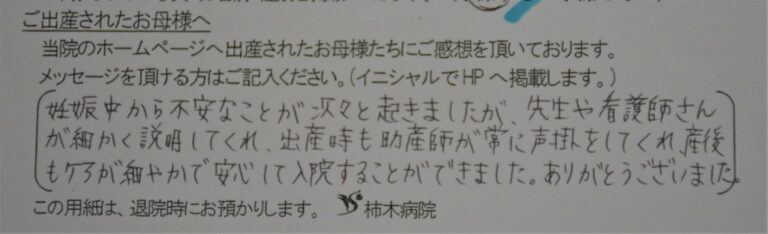 ご出産されたお母様へ
当院のホームページへ出産されたお母様たちにご感想を頂いております。
メッセージを頂ける方はご記入ください。(イニシャルでHPへ掲載します。)
妊娠中から不安なことが次々と起きましたが、先生や看護師さん
が細かく説明してくれ、出産時も助産師が常に声掛をしてくれ、産後
もケアが細やかで安心して入院することができました。ありがとうございました。
この用細は、退院時にお預かりします。 柿木病院